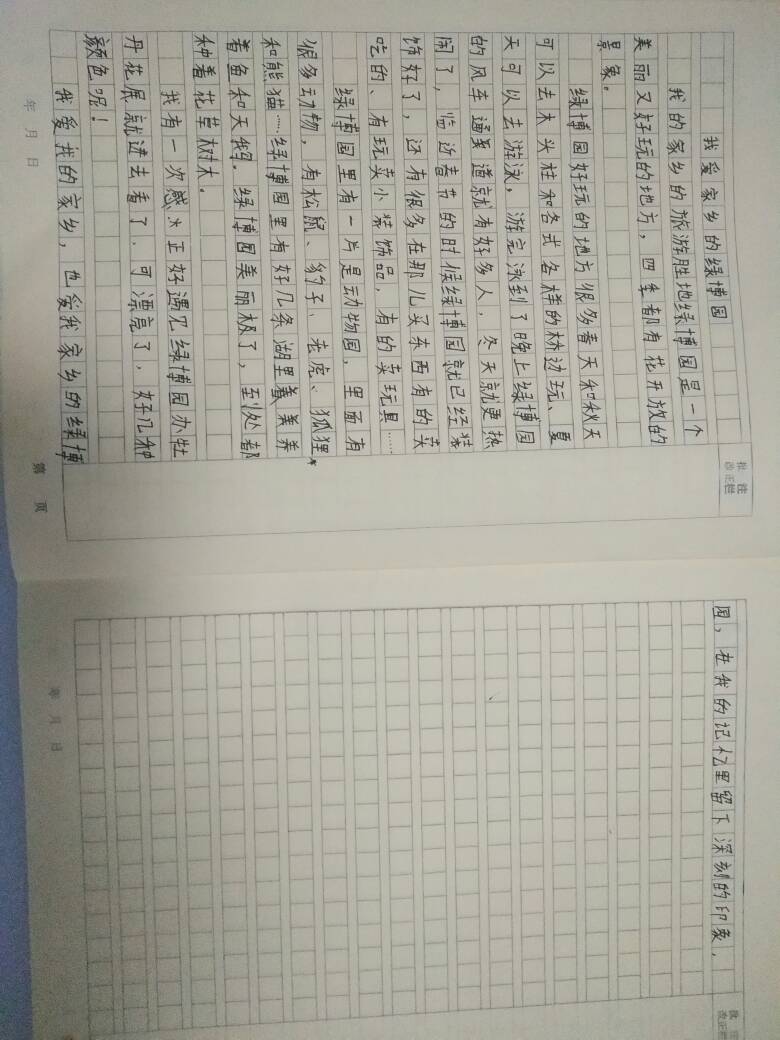 我爱家乡的绿博园
我的家乡的旅游胜地绿博园是一个
美丽又好玩的地方，四季都有花开放的
景象。
绿博园好玩的地方很多春天和秋天
可以去木头桩和各式各样的桥边玩、夏
天可以去游泳，游完泳到了晚上绿博园
的风车通道就有好多人，冬天就更热
闹了，临近春节的时候绿博园就已经装
饰好了，还有很多在那儿买东西有的卖
吃的、有玩卖小装饰品，有的卖玩具……
绿博园里有一片是动物园，里面有
很多动物，有松鼠、豹子、老虎、狐狸
和熊猫……绿博园里有好几条湖里养
着鱼和天鹅。绿博园美丽极了，到处都
种着花草树木。
我有一次正好遇见绿博园办牡
丹花展就进去看了．可漂亮了，好几种
颜色呢！
我爱我的家乡，也爱我家乡的绿博
年 月 日
第 页
批注
改正栏
园，在我的记忆里留下深刻的印象．
年 月 日
改正栏